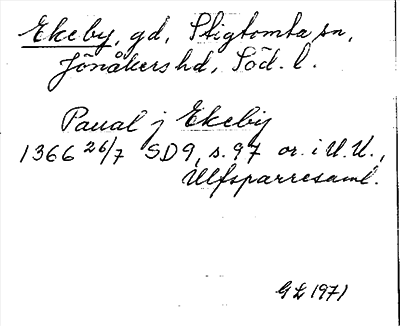 Ekeby, gd, Stigtomta sn,
Jönåkers hd, Söd. l.
Paual j Ekeby
1366 26/7 SD9, s. 97 or. i U.U.,
Ulfsparresaml.
G L 1971